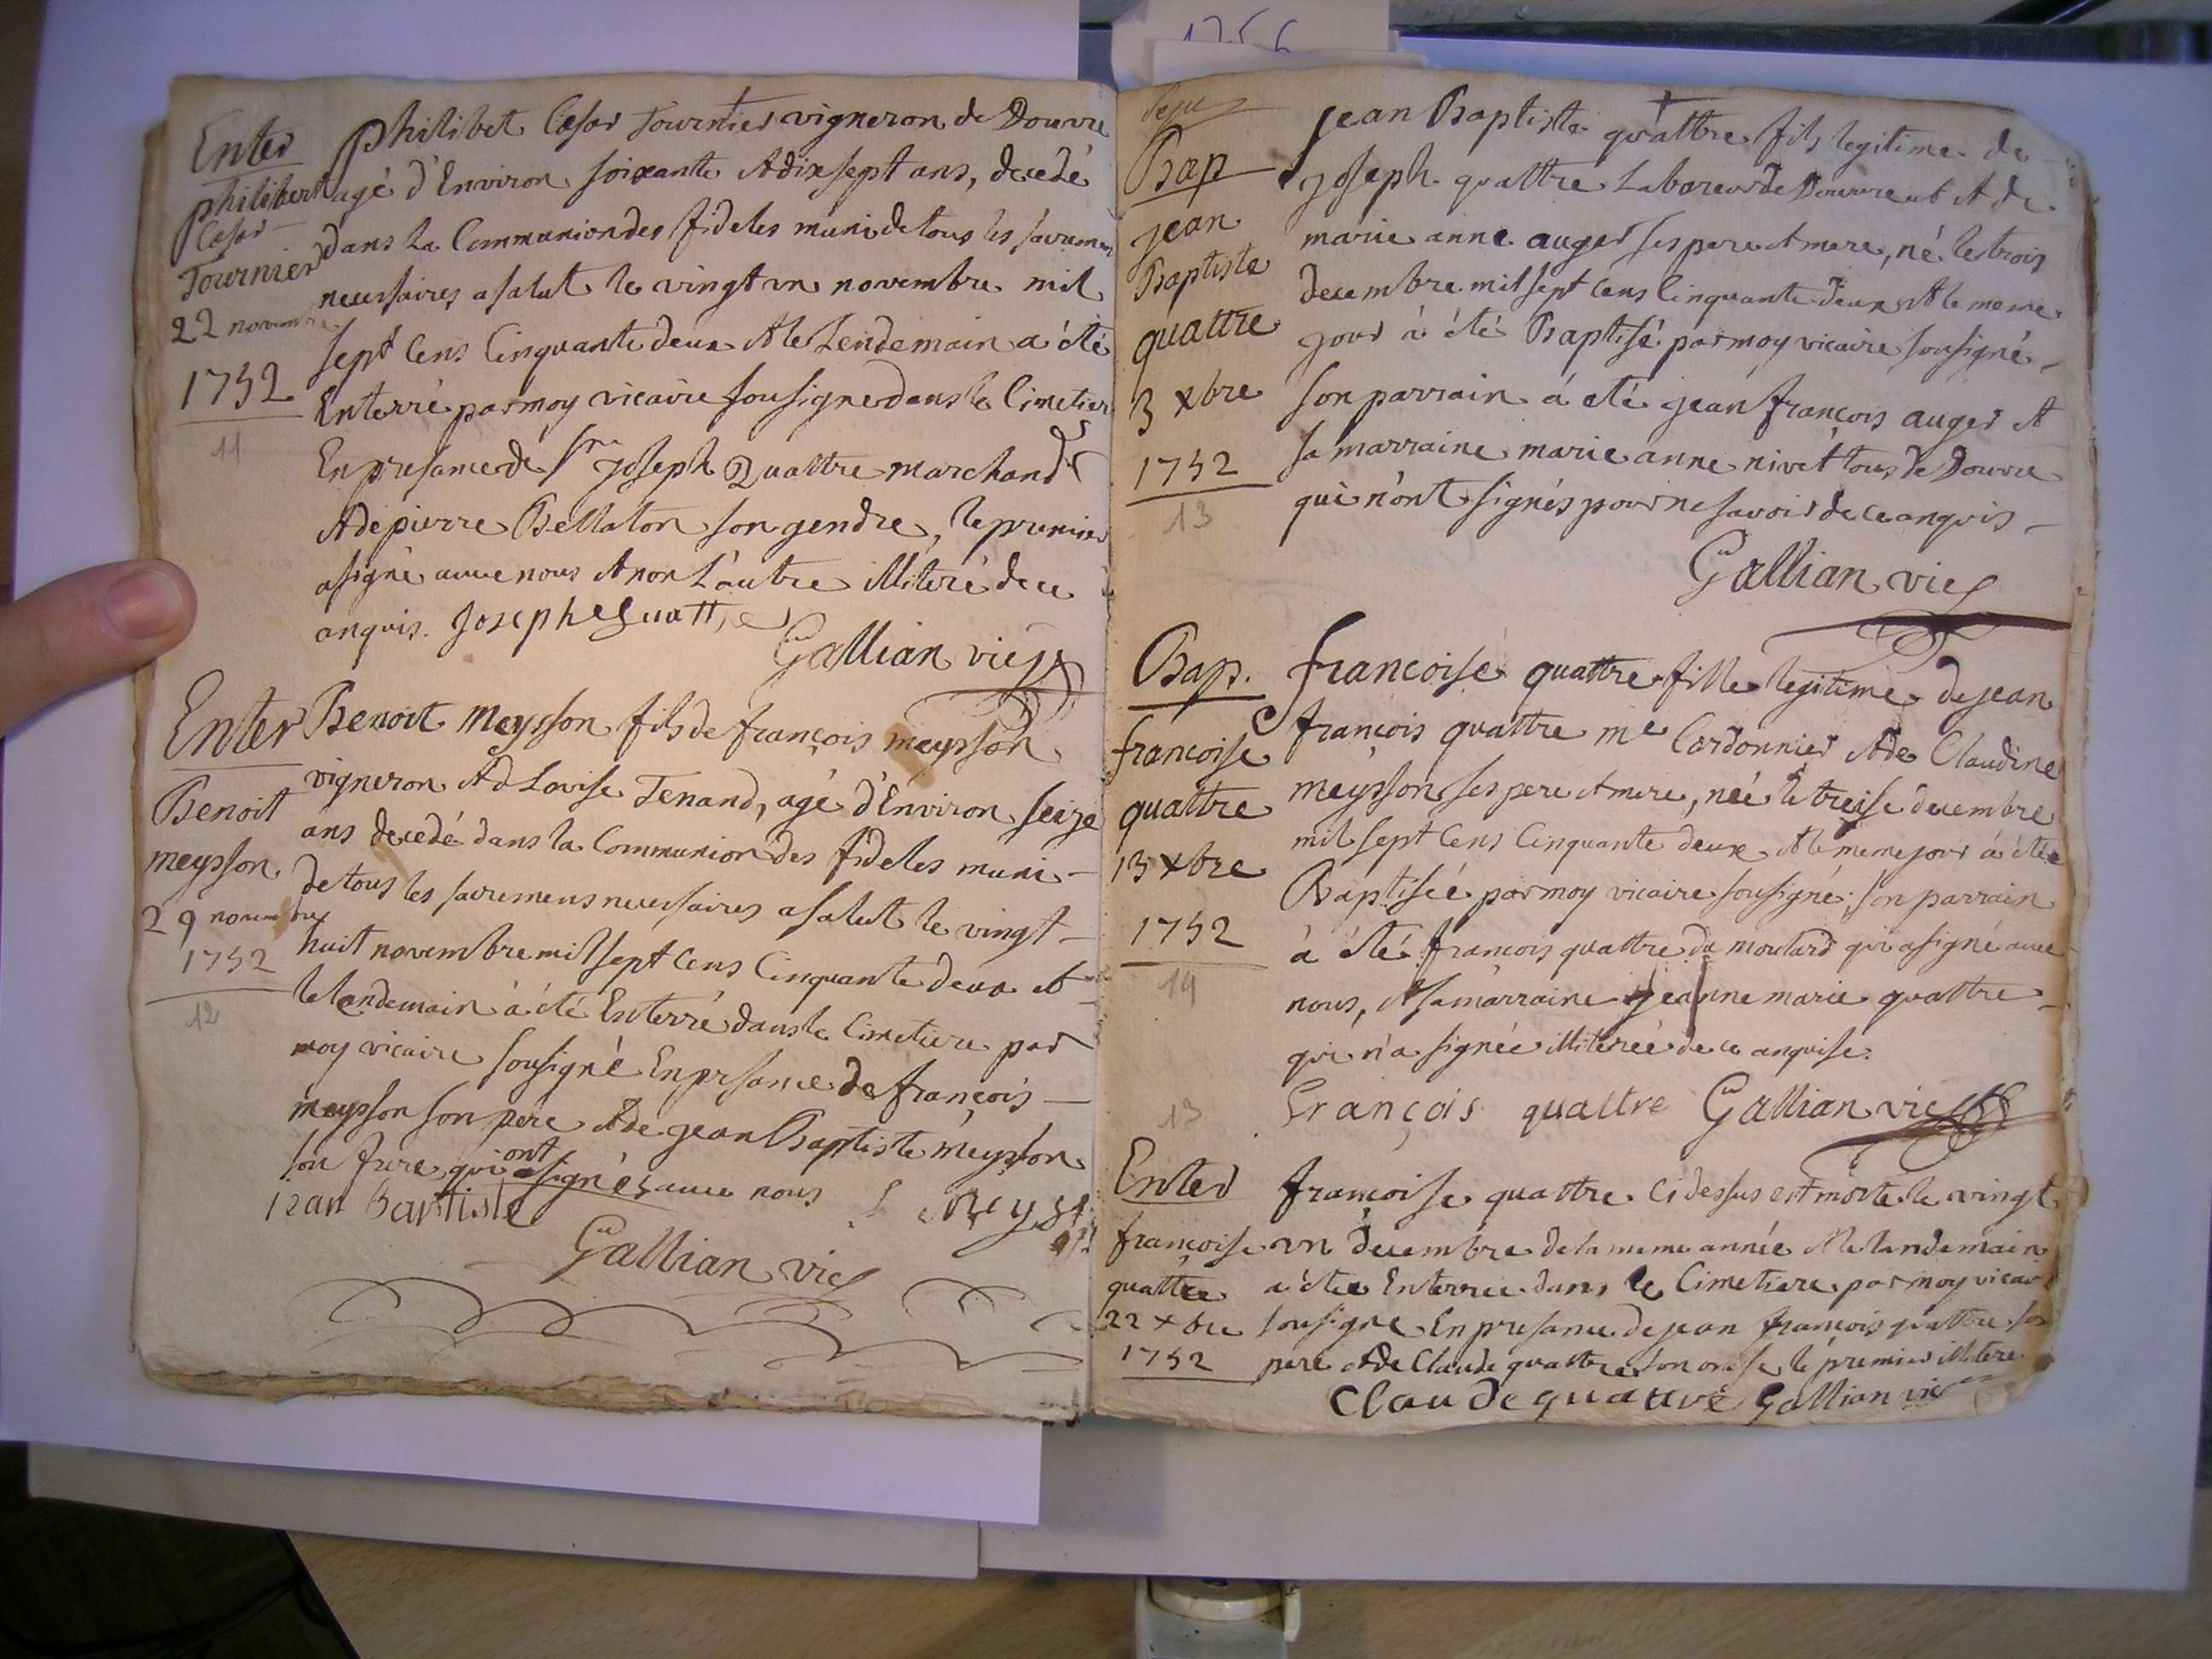 1756
Enter
philibert
Cesar
Tournier
22 novembre
1752
11
philibet Cesar Tournier vigneron de Douvre
agé d'Environ soixante & dix sept ans, decedé
dans la Communion des fideles muni de tous les sacremen
necessaires a salut le vingt un novembre mil
sept Cens Cinquante deux & le Lendemain a été
Enterré par moy vicaire sousigné dans le Cimetier
En presance de Sr Joseph Quattre marchand
& de pierre Bellaton son gendre, le premier
a signé avec nous & non L'autre illiteré de ce
anquis. Joseph Quattre
Gallian vic
Enter
Benoit
meysson
29 novembre
1752
12
Benoit Meysson fils de françois meysson
vigneron & d Lovise Tenand, agé d'Environ seize
ans decedé dans la Communion des fideles muni
de tous les sacremens necessaires a salut le vingt
huit novembre mil sept Cens Cinquante deux et
le landemain à été Enterré dans le Cimetiere par
moy vicaire sousigné En presance de françois
meysson son pere & de jean Baptiste meysson
son frere qui ont signés avec nous
jean Baptiste
Gallian vic
Bap
jean
Baptiste
quattre
3 xbre
1752
13
jean Baptiste quattre fils legitime de
joseph quattre Laboreur de Douvre et & de
marie anne auger ses pere & mere, né le trois
decembre mil sept Cens Cinquante deux & le meme
jour à été Baptisé par moy vicaire sousigné
son parrain á eté jean françois auger &
sa marraine marie anne nivet tous de Douvre
qui n'ont signés pour ne savoir de ce anquis
Gallian vic
Bap.
francoise
quattre
13 xbre
1752
14
francoise quattre fille legitime de jean
françois quattre me Cordonnier & de Claudine
meysson ses pere & mere, née le treise decembre
mil sept Cens Cinquante deux & le meme jour à étée
Baptiseé par moy vicaire sousigné; son parrain
à été francois quattre du moulard qui a signé avec
nous, & sa marraine jeanne marie quattre
qui n'a signée illiterée de ce anquise.
François quattre Gallian vic
13
Enter
françoise
quattre
22 xbre
1752
françoise quattre Ci dessus est morte le vingt
un decembre de la meme année & le landemain
a étée Enterrée dans le Cimetiere par moy vicair
sousigné En presance de jean françois quattre son
pere & de Claude quattre son oncle le premier illitere
Claude quattre Gallian vic